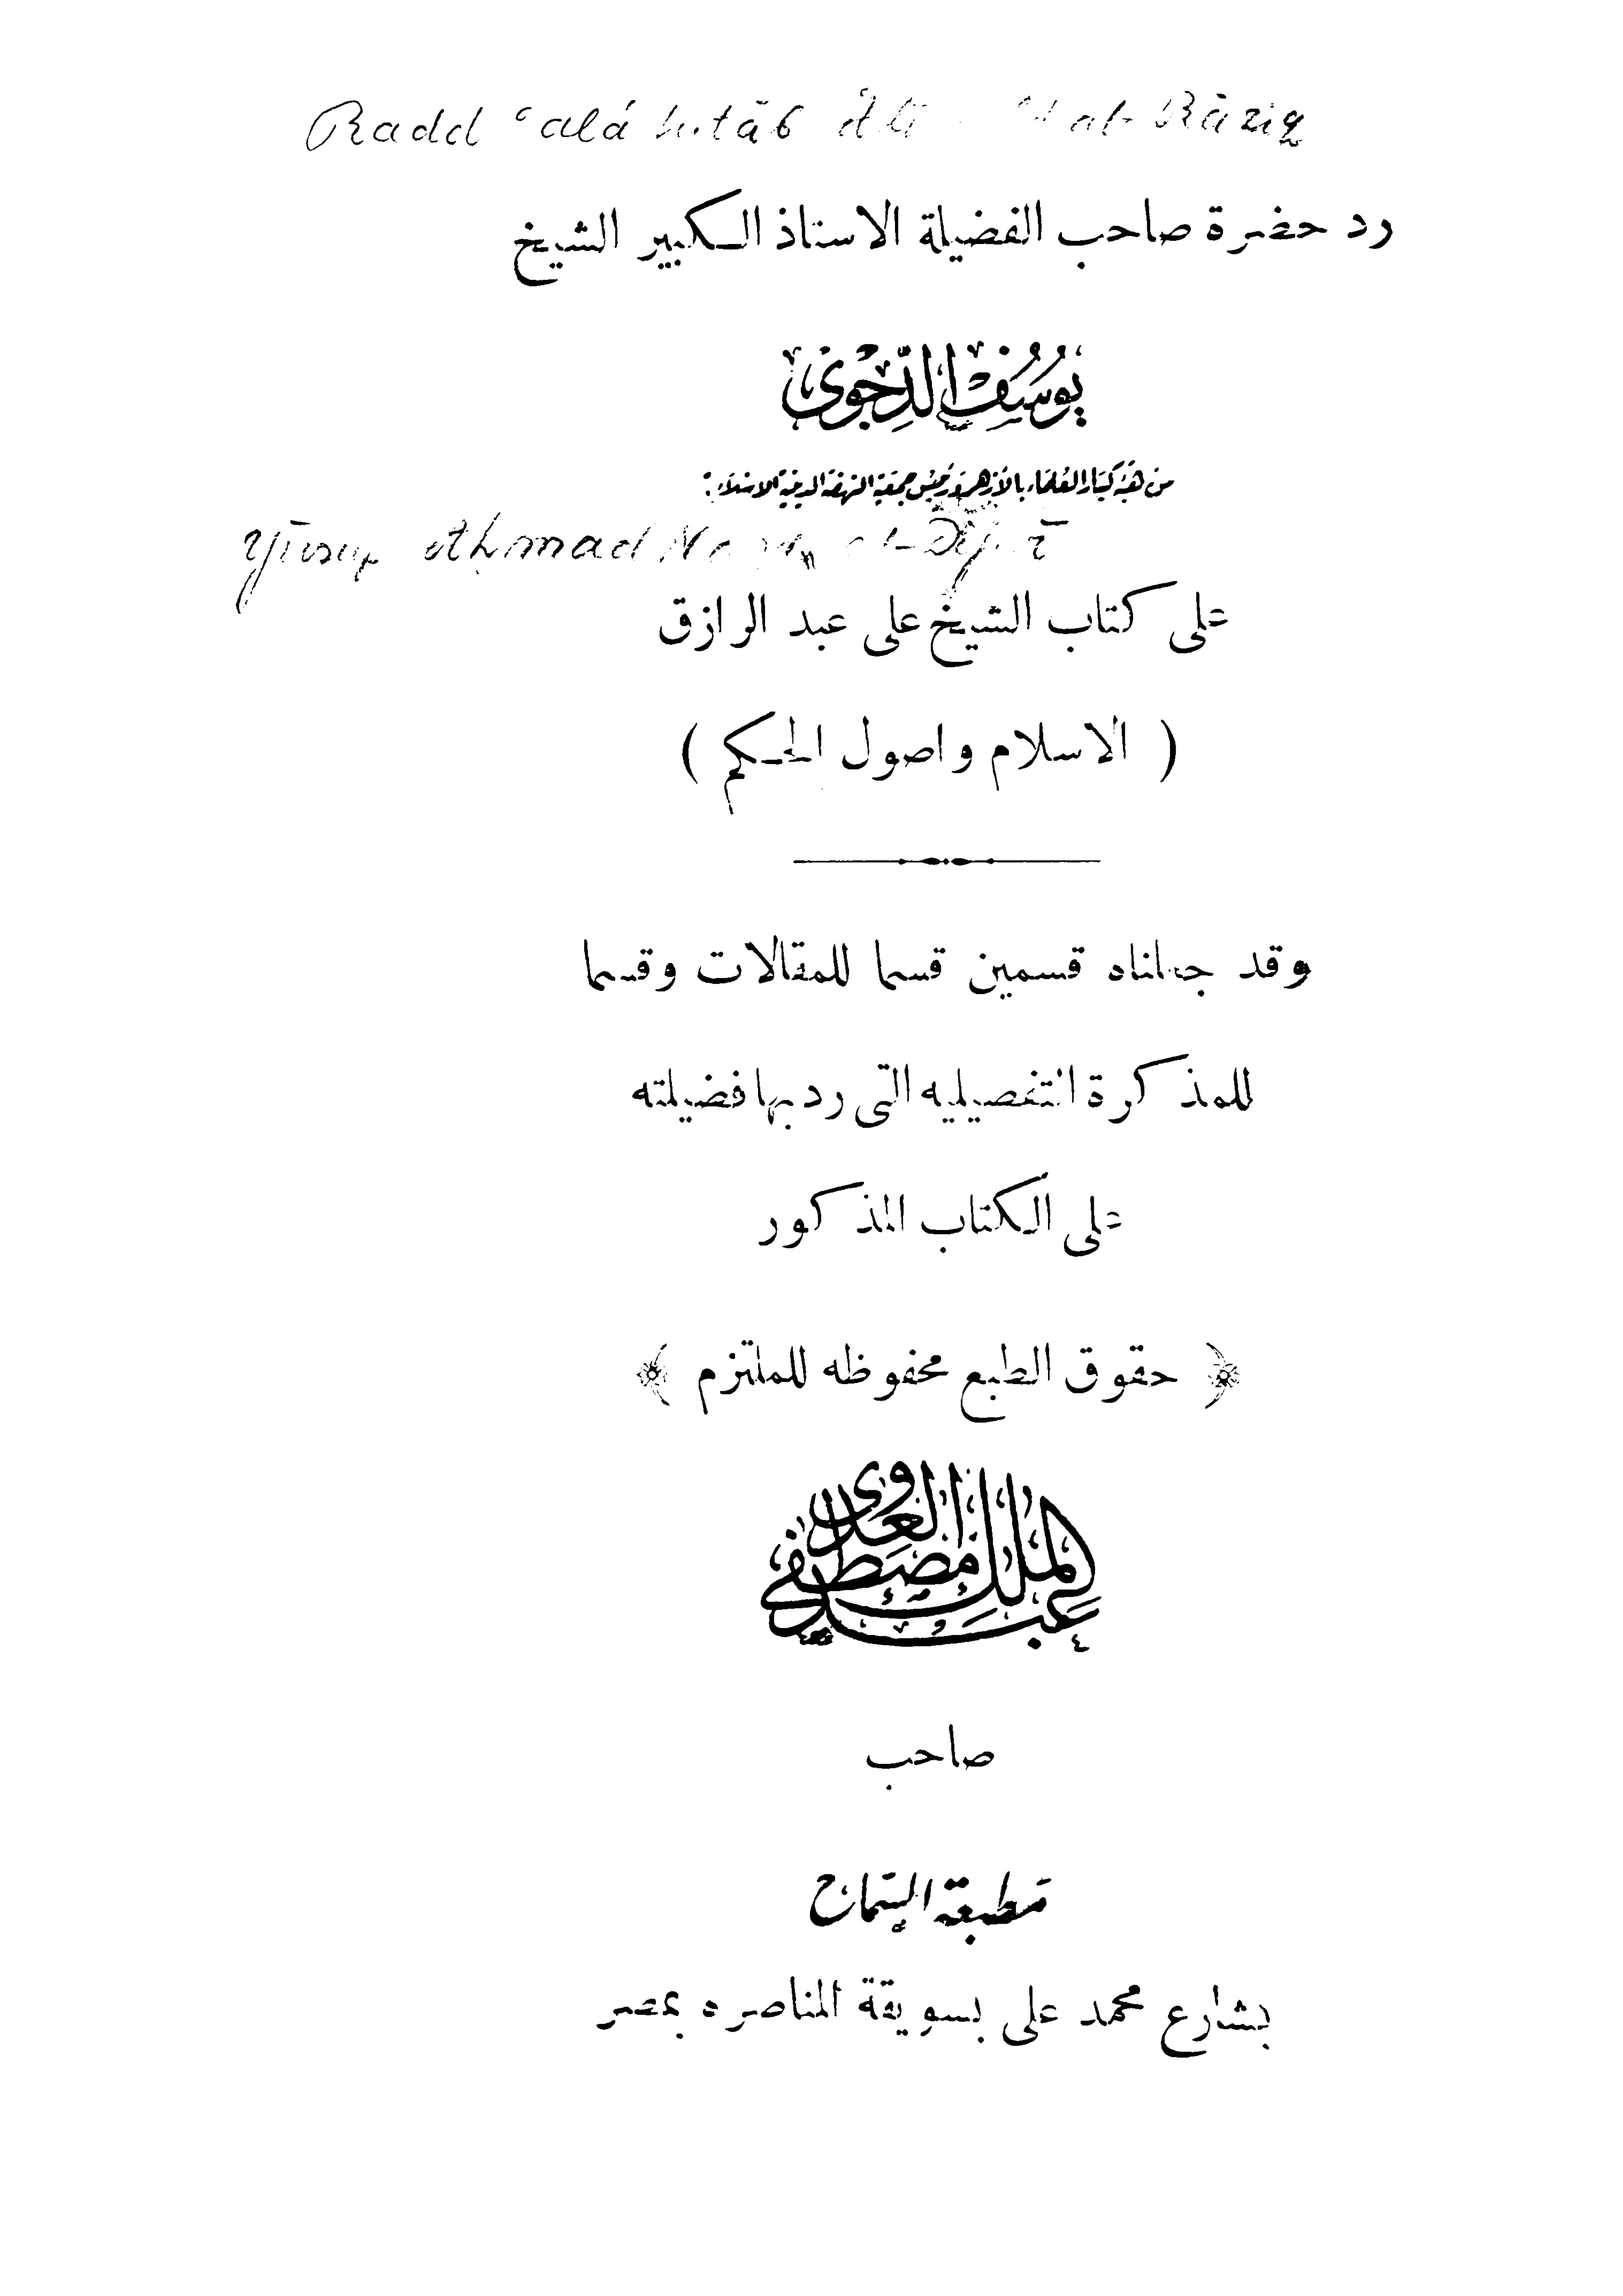 Radd ʿalá kitāb ʿAlī al-Rāziq
رد حضرة صاحب الفضيلة الاستاذ الكبير الشيخ
يوسف الدجوى
من هيئة كبار العلماء بالأزهر ورئيس جمعية النهضة الدينية الاسلامية
Yūsuf Ahmad
على كتاب الشيخ على عبد الرازق
( الاسلام واصول الحكم )
وقد جعلناه قسمين قسما للمقالات وقسما
للمذكرة التفصيليه التى رد بها فضيلته
على الكتاب المذكور
﴿ حقوق الطبع محفوظه للملتزم ﴾
عبد الملك مصطفى العدوى
صاحب
مطبعة السماح
بشارع محمد على بسويقة المناصره بمصر